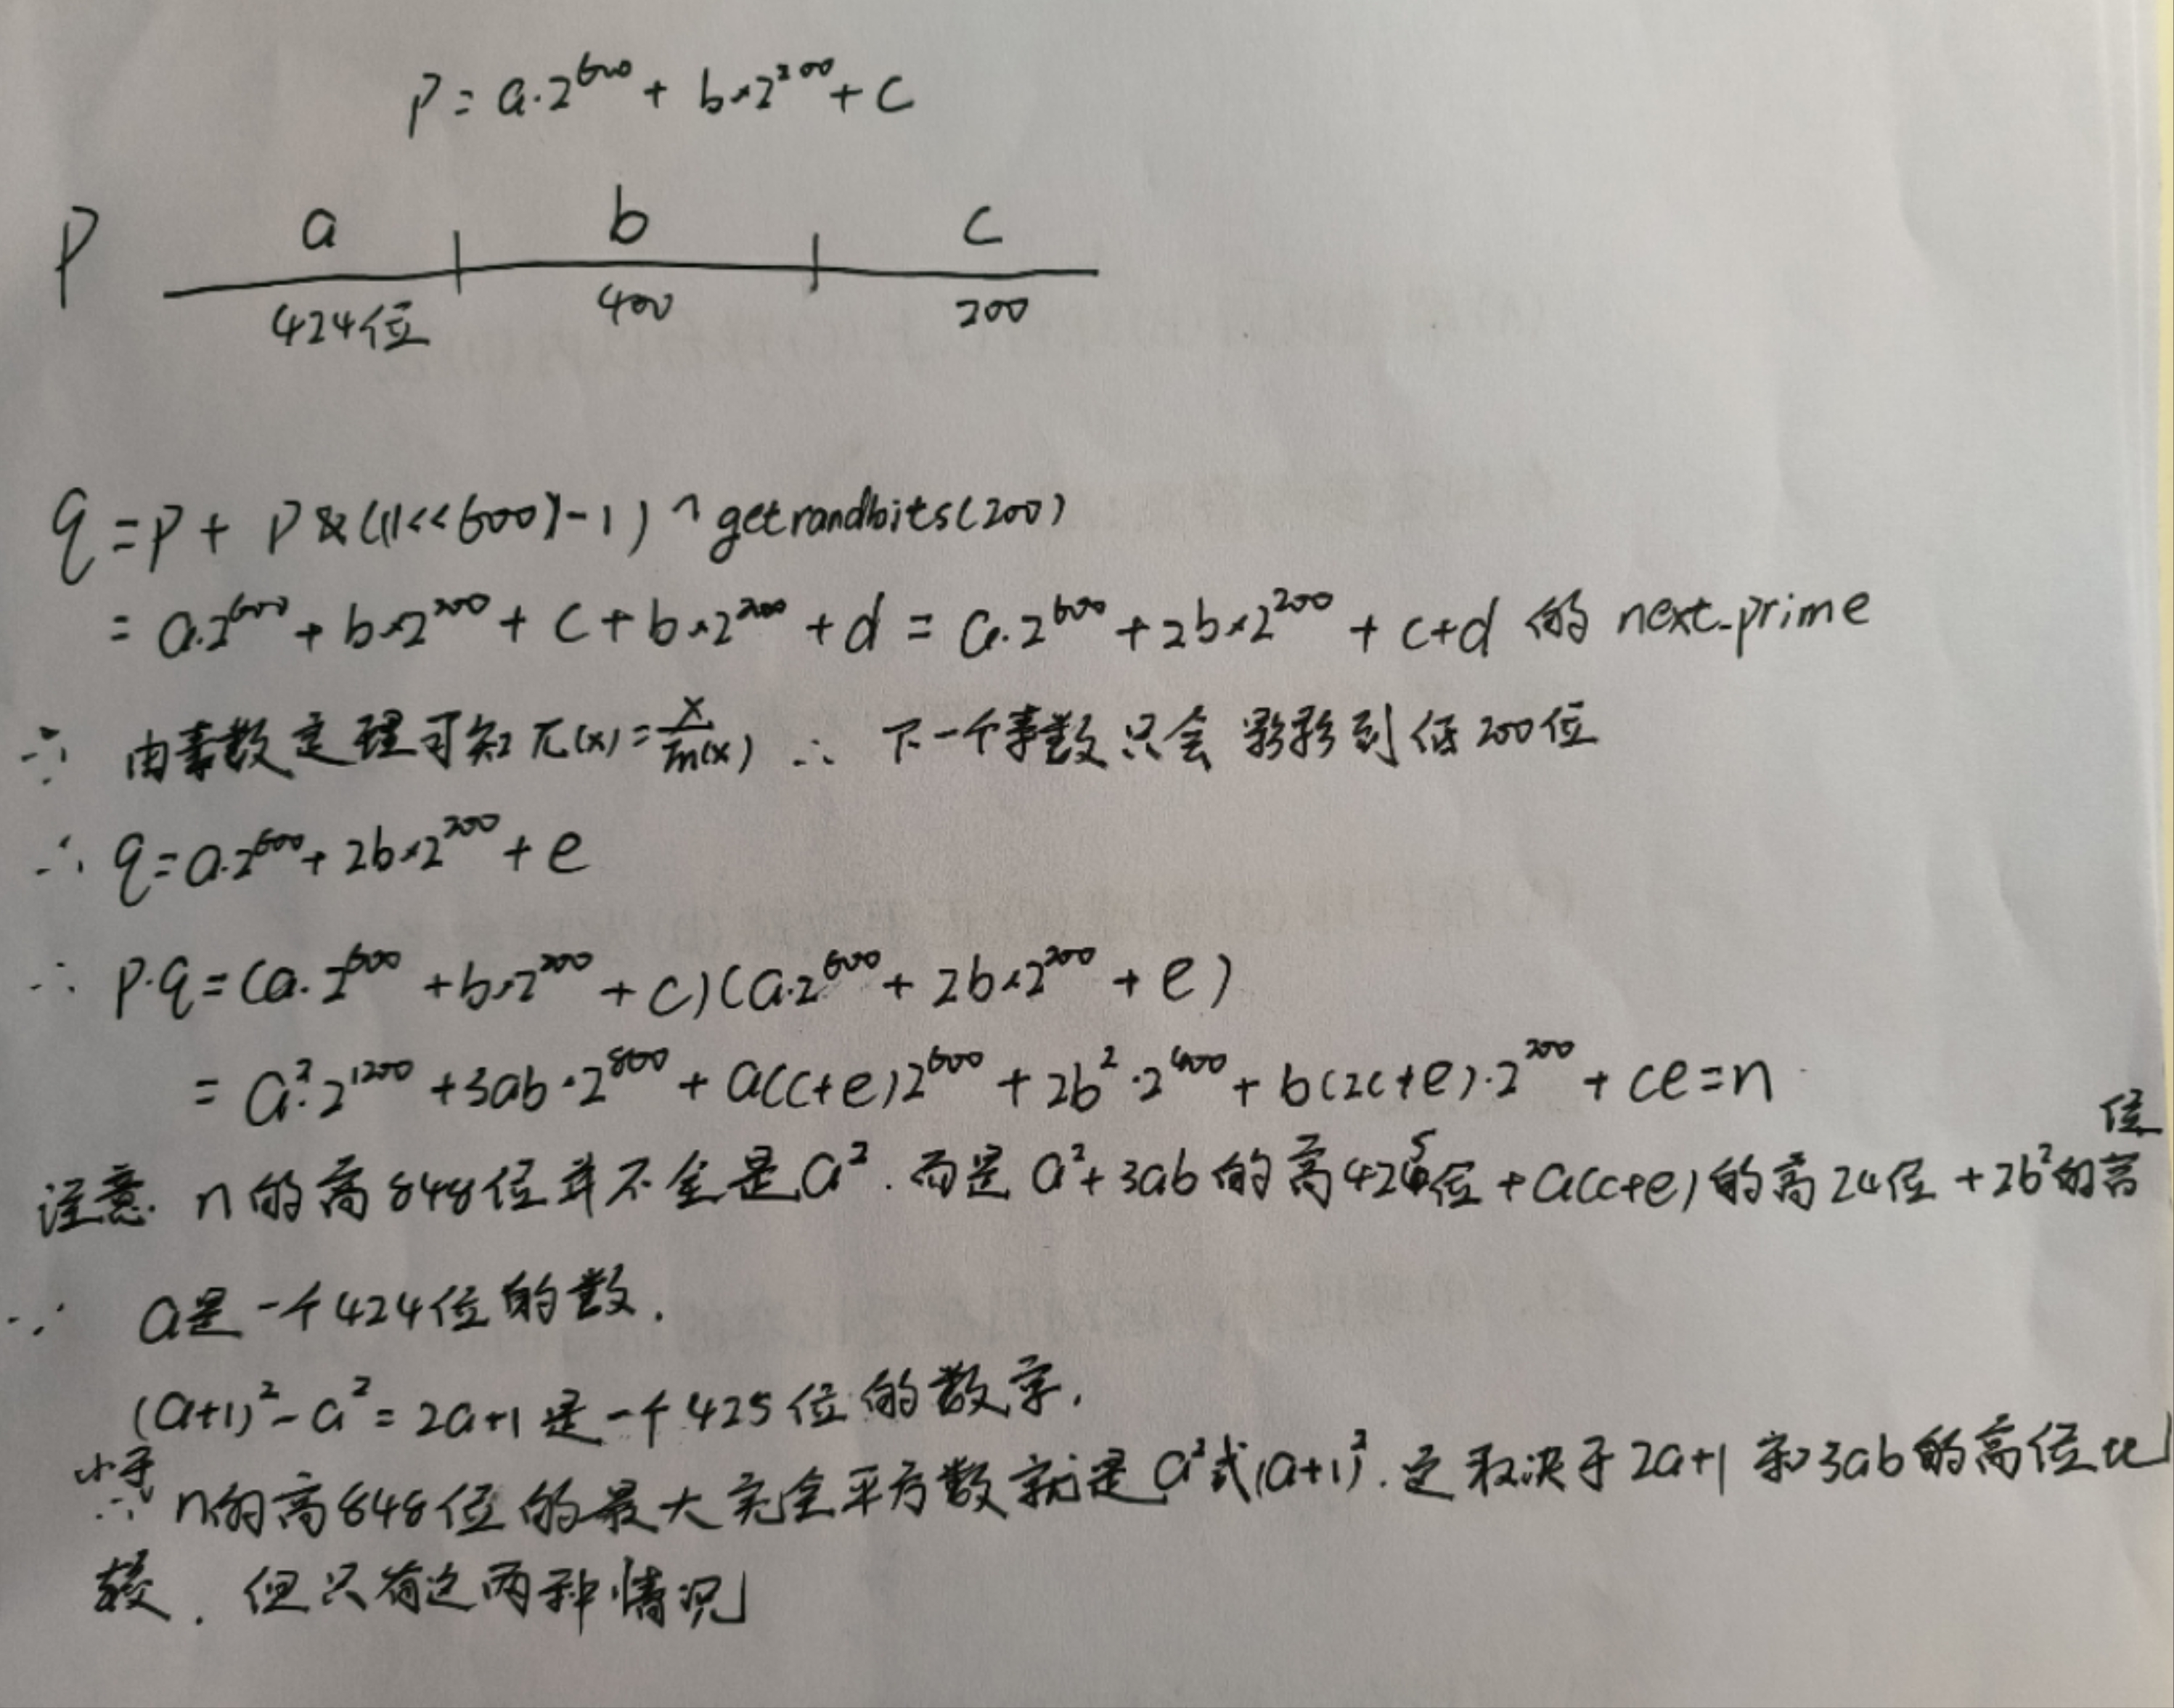 P = a·2^600 + b×2^200 + c
P a b c
424位 400 200
q = P + P & ((1<<600)-1) ^ getrandbits(200)
= a·2^600 + b×2^200 + c + b×2^200 + d = a·2^600 + 2b×2^200 + c+d 的 next_prime
∵ 由素数定理可知 π(x) = x/ln(x) ∴ 下一个素数只会影响到低200位
∴ q = a·2^600 + 2b×2^200 + e
∴ p·q = (a·2^600 + b×2^200 + c)(a·2^600 + 2b×2^200 + e)
= a²·2^1200 + 3ab·2^800 + a(c+e)2^600 + 2b²·2^400 + b(2c+e)·2^200 + ce = n
注意. n的高848位并不全是a². 而是 a²+3ab 的高425位 + a(c+e) 的高24位 + 2b²的高位
∵ a是一个424位的数.
(a+1)² - a² = 2a+1 是一个425位的数字.
∴ 小于n的高848位的最大完全平方数就是a²或(a+1)². 这取决于2a+1和3ab的高位比
较. 但只有这两种情况